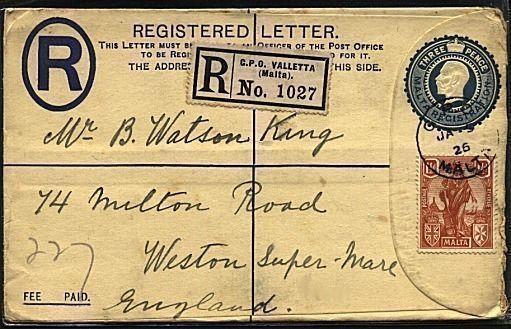 REGISTERED LETTER.
THIS LETTER MUST BE
TO AN OFFICER OF THE POST OFFICE
TO BE REGI
FOR IT.
THE ADDRES
THIS SIDE.
R
R
G.P.O. VALLETTA
(Malta).
No. 1027
THREE PENCE
MALTA REGISTRATION
JA
26
MALTA
Mr B. Watson King
74 Milton Road
Weston Super-Mare
England.
MALTA
227
FEE PAID.